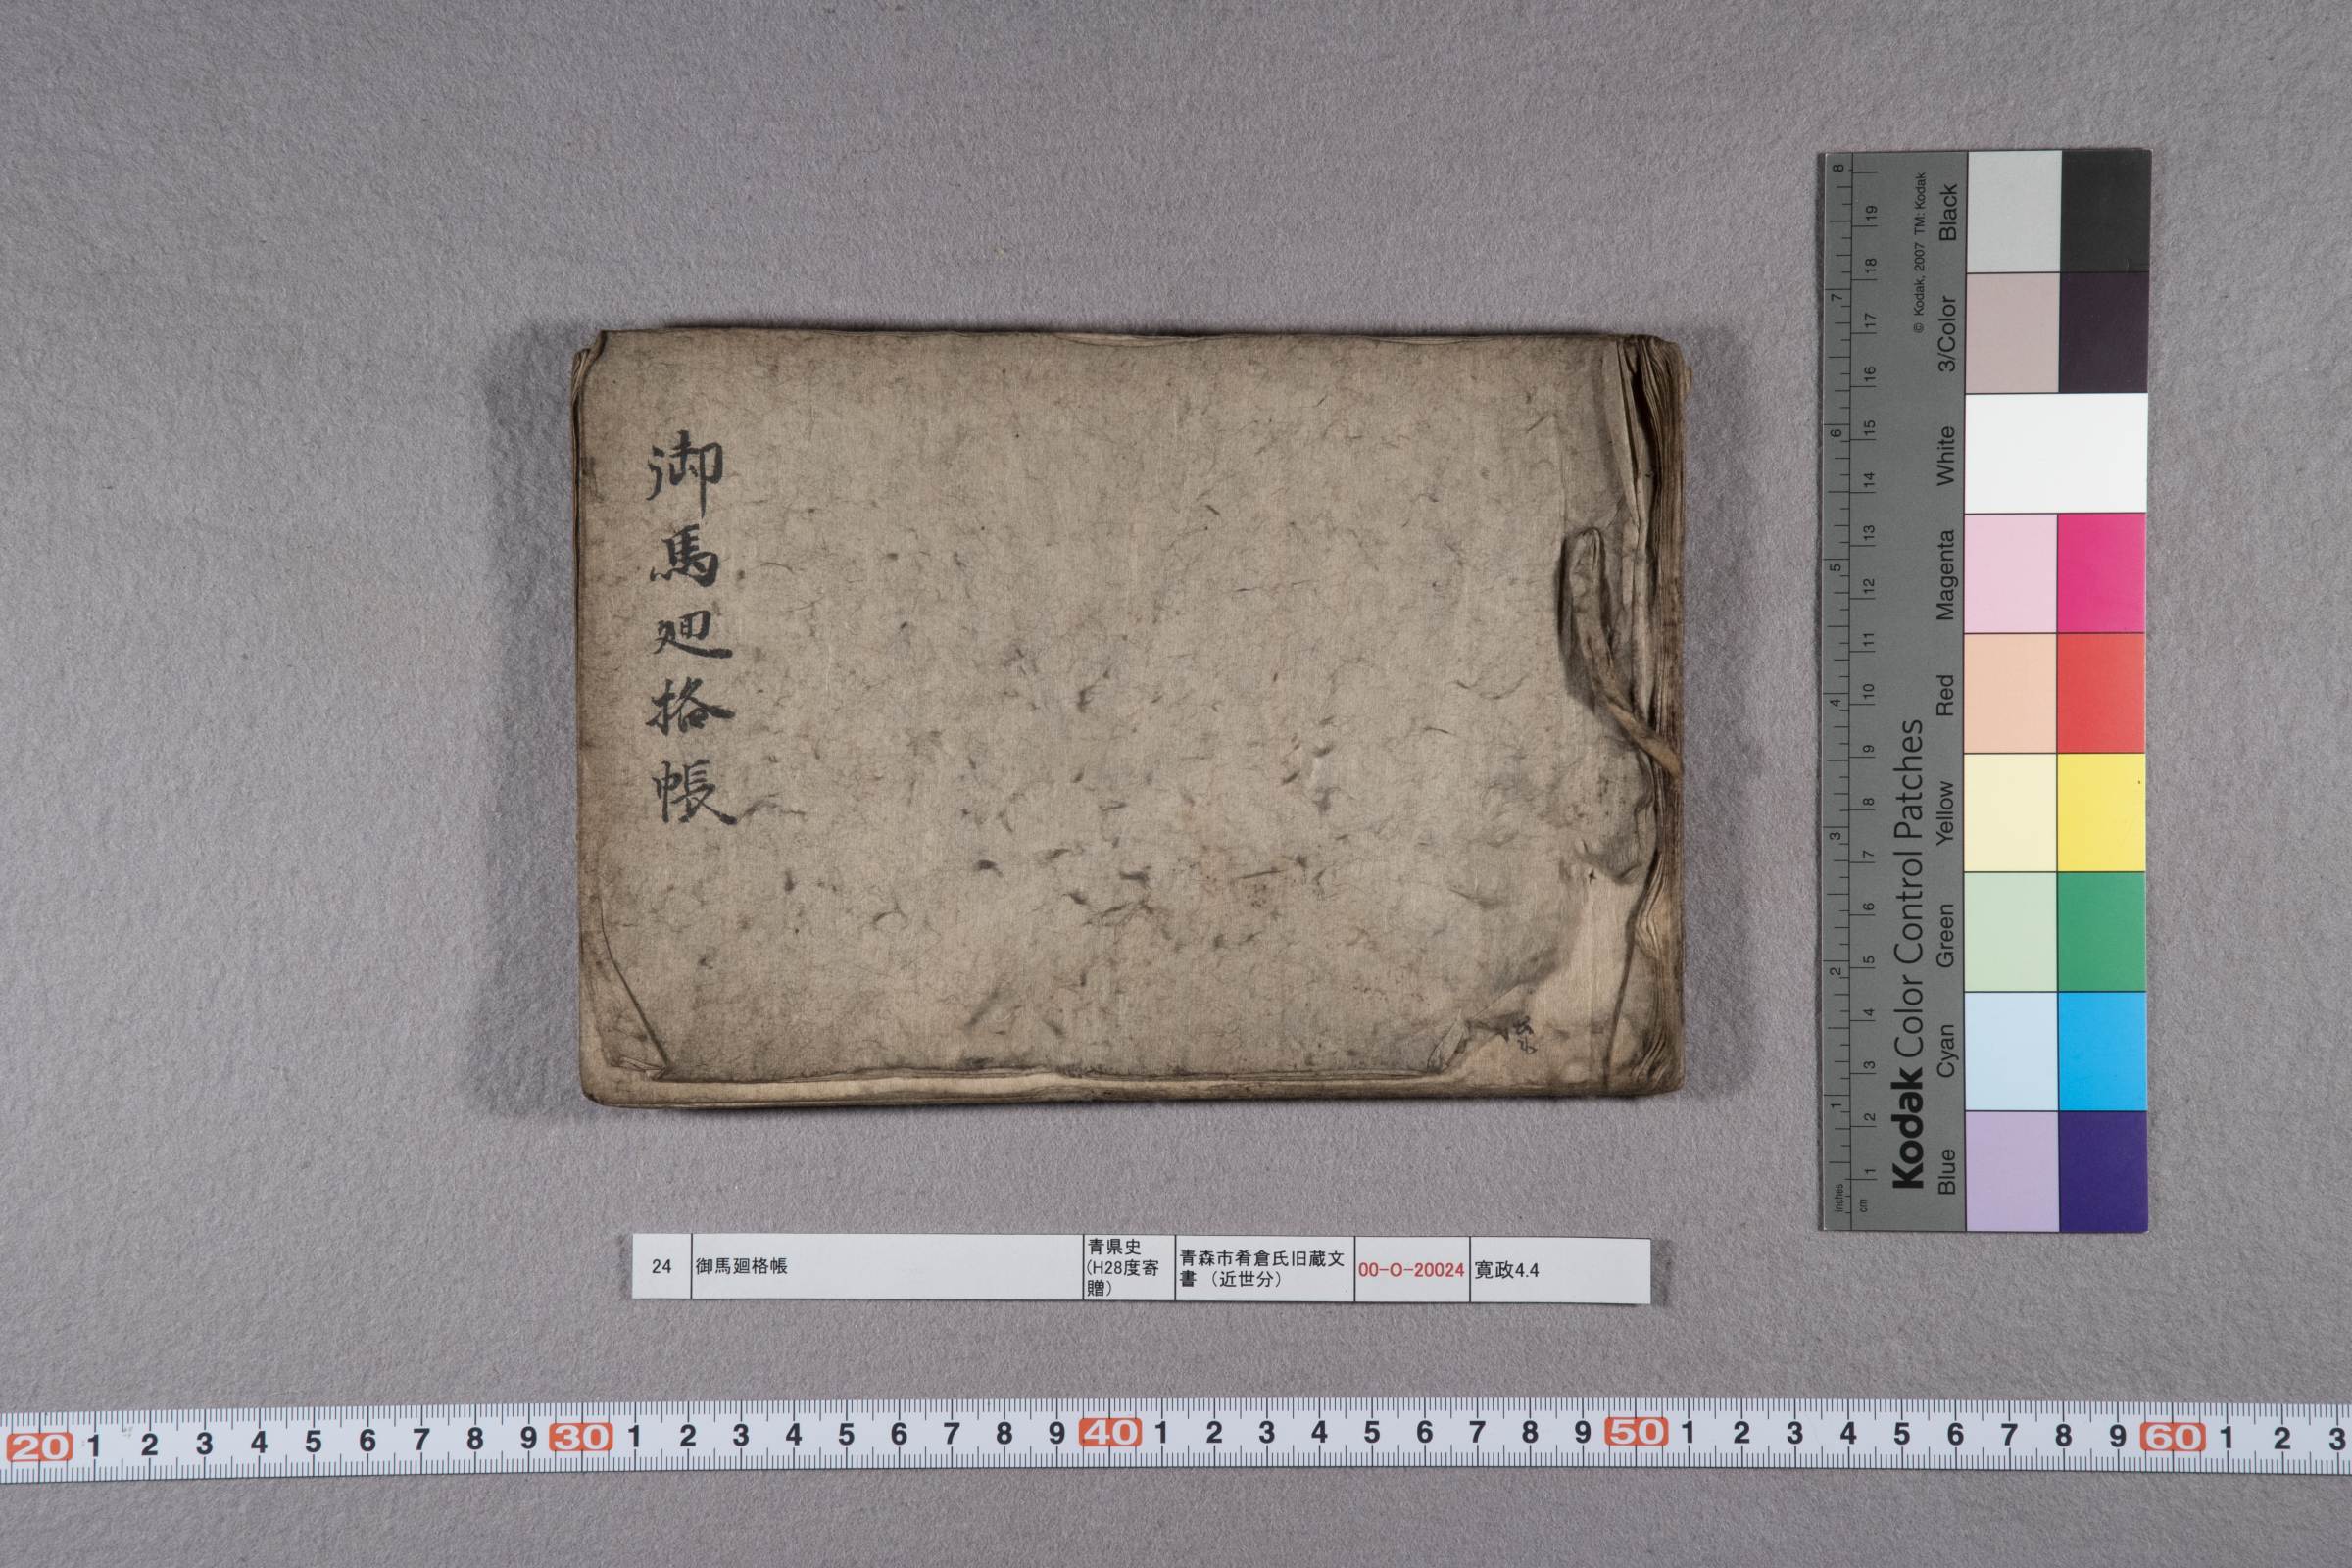 御馬廻格帳
24
御馬廻格帳
青県史
(H28度寄
贈)
青森市肴倉氏旧蔵文
書 (近世分)
00-O-20024
寛政4.4
© Kodak, 2007 TM: Kodak
Kodak Color Control Patches
Blue Cyan Green Yellow Red Magenta White 3/Color Black
inches 1 2 3 4 5 6 7 8
cm 1 2 3 4 5 6 7 8 9 10 11 12 13 14 15 16 17 18 19
20 1 2 3 4 5 6 7 8 9 30 1 2 3 4 5 6 7 8 9 40 1 2 3 4 5 6 7 8 9 50 1 2 3 4 5 6 7 8 9 60 1 2 3